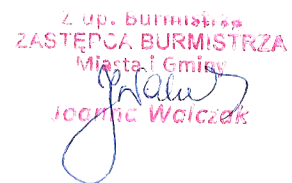 Z up. Burmistrza
ZASTĘPCA BURMISTRZA
Miasta i Gminy
Joanna Walczak